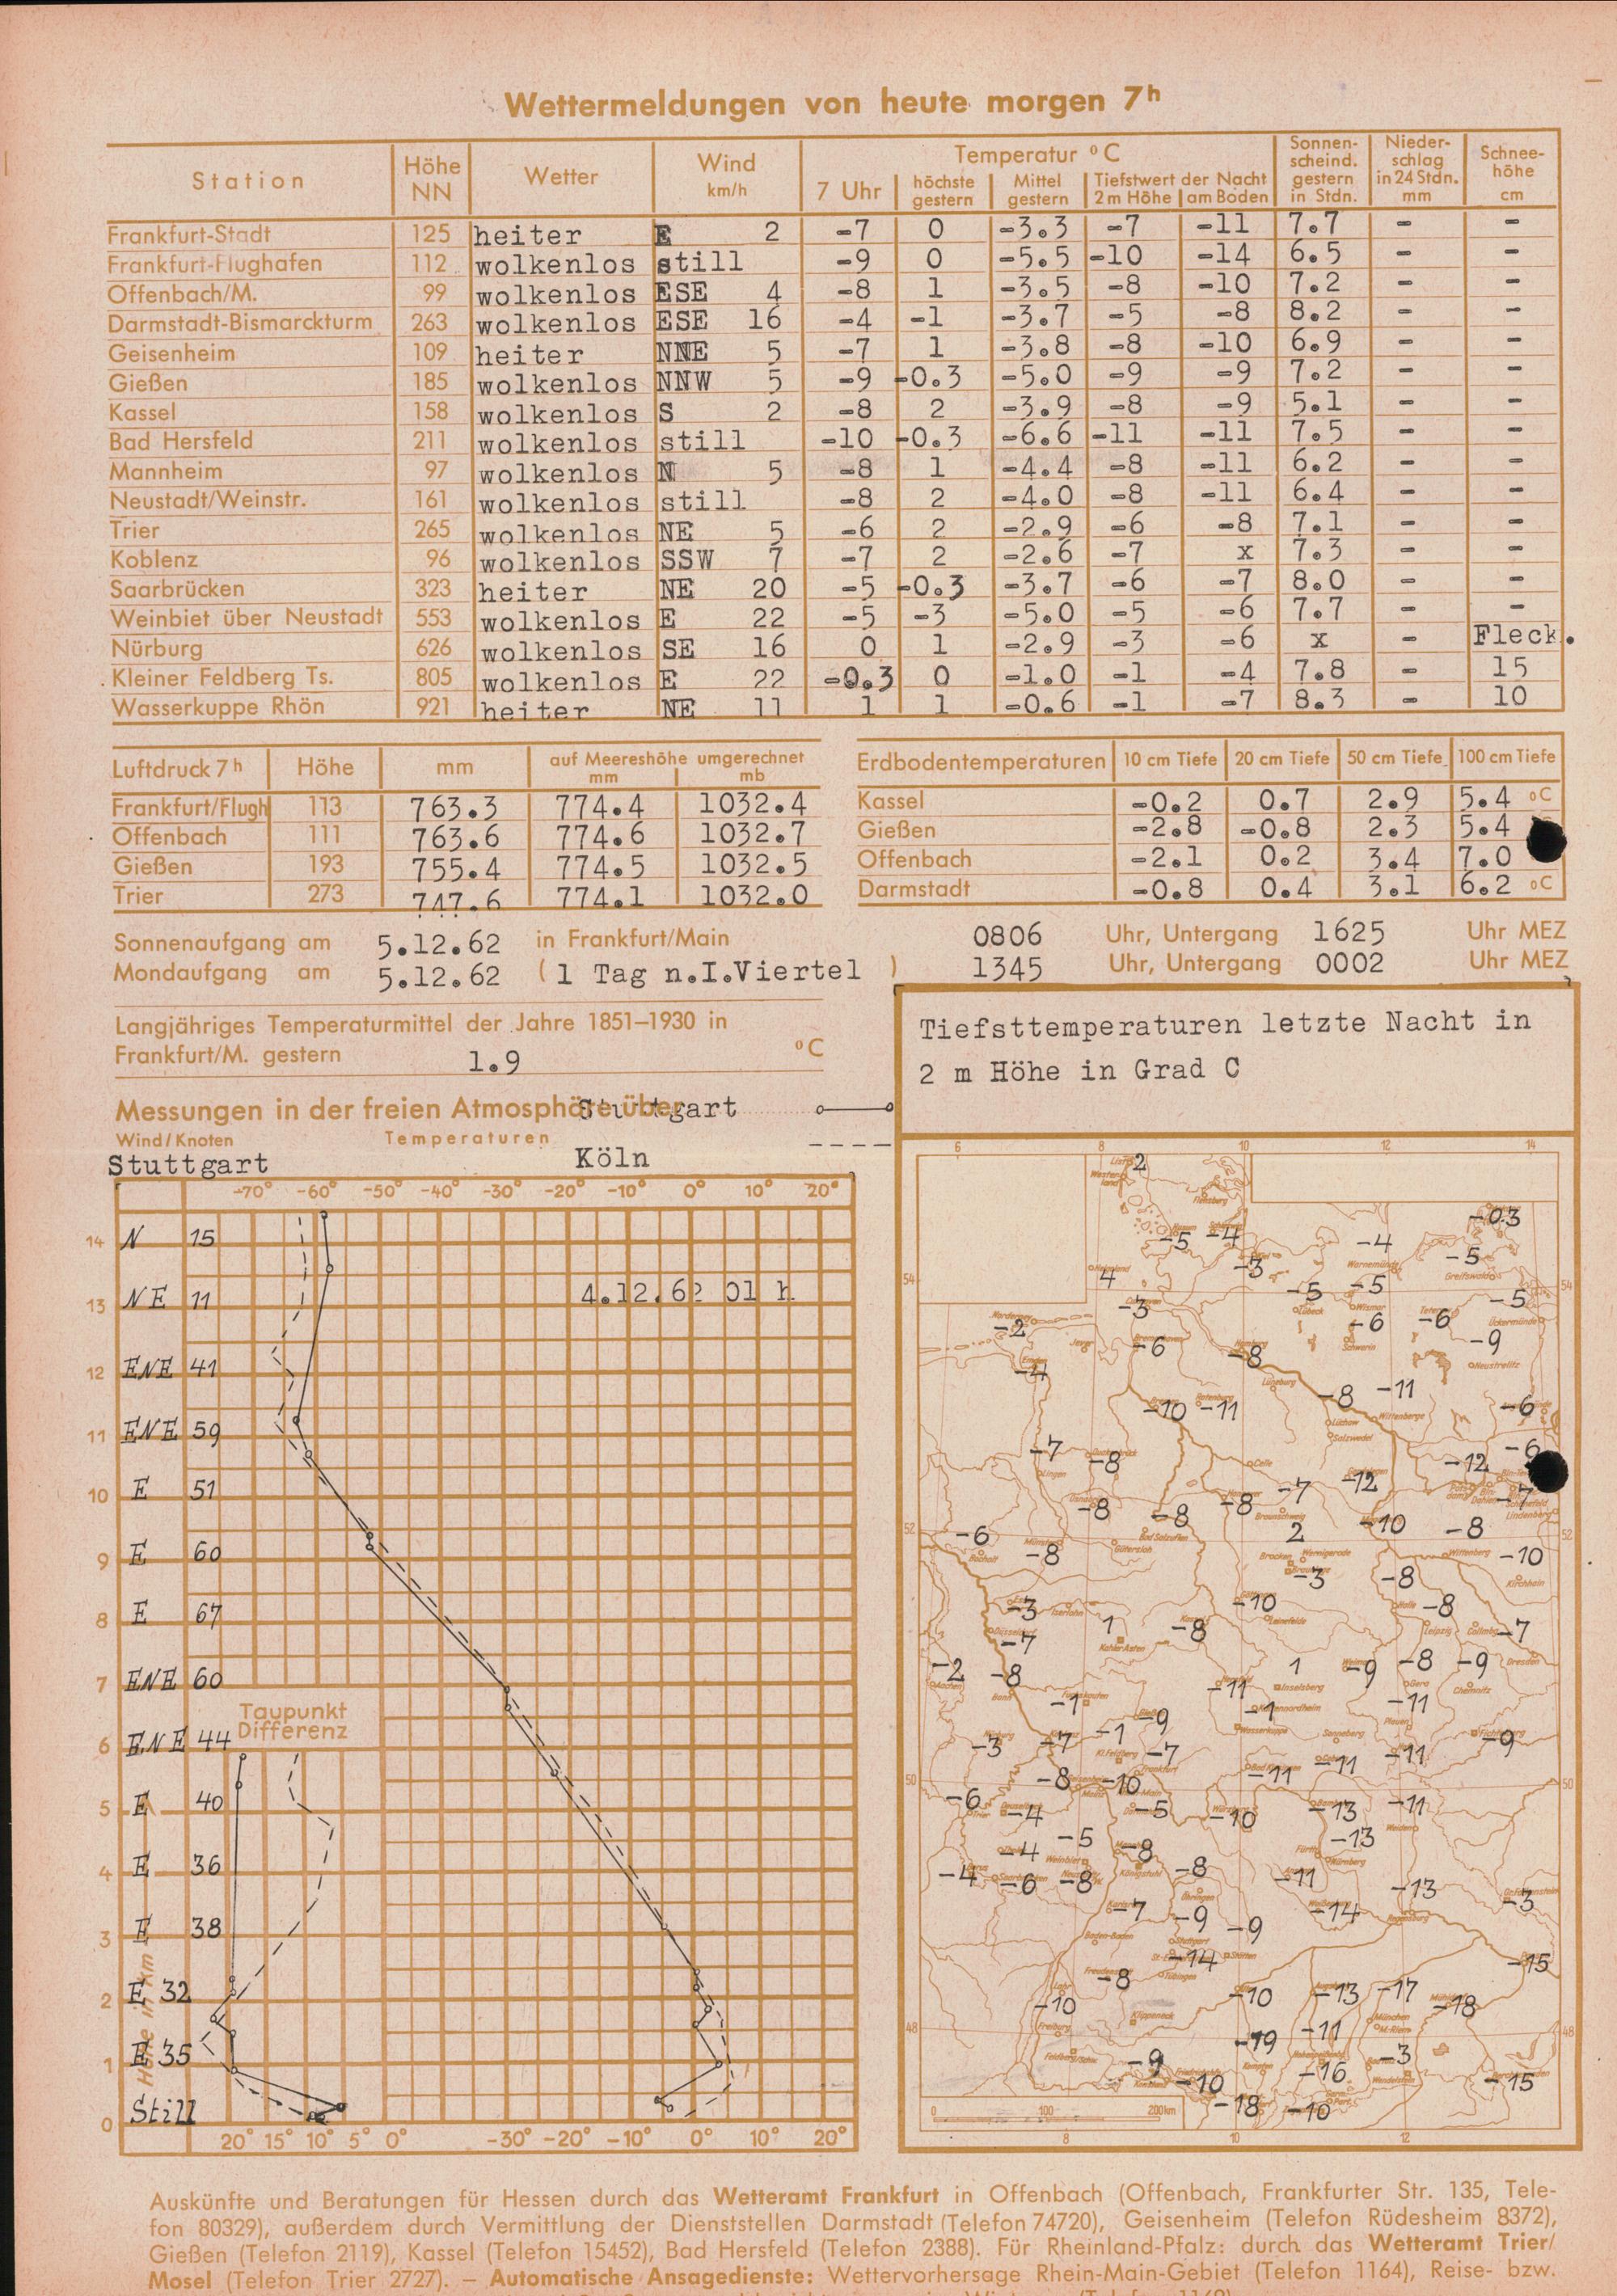 Wettermeldungen von heute morgen 7h
Station Höhe NN Wetter Wind km/h Temperatur °C Sonnenscheind. gestern in Stdn. Niederschlag in 24 Stdn. mm Schneehöhe cm
7 Uhr höchste gestern Mittel gestern Tiefstwert der Nacht 2 m Höhe am Boden
Frankfurt-Stadt 125 heiter E 2 -7 0 -3.3 -7 -11 7.7 - -
Frankfurt-Flughafen 112 wolkenlos still -9 0 -5.5 -10 -14 6.5 - -
Offenbach/M. 99 wolkenlos ESE 4 -8 1 -3.5 -8 -10 7.2 - -
Darmstadt-Bismarckturm 263 wolkenlos ESE 16 -4 -1 -3.7 -5 -8 8.2 - -
Geisenheim 109 heiter NNE 5 -7 1 -3.8 -8 -10 6.9 - -
Gießen 185 wolkenlos NNW 5 -9 -0.3 -5.0 -9 -9 7.2 - -
Kassel 158 wolkenlos S 2 -8 2 -3.9 -8 -9 5.1 - -
Bad Hersfeld 211 wolkenlos still -10 -0.3 -6.6 -11 -11 7.5 - -
Mannheim 97 wolkenlos N 5 -8 1 -4.4 -8 -11 6.2 - -
Neustadt/Weinstr. 161 wolkenlos still -8 2 -4.0 -8 -11 6.4 - -
Trier 265 wolkenlos NE 5 -6 2 -2.9 -6 -8 7.1 - -
Koblenz 96 wolkenlos SSW 7 -7 2 -2.6 -7 x 7.3 - -
Saarbrücken 323 heiter NE 20 -5 -0.3 -3.7 -6 -7 8.0 - -
Weinbiet über Neustadt 553 wolkenlos E 22 -5 -3 -5.0 -5 -6 7.7 - -
Nürburg 626 wolkenlos SE 16 0 1 -2.9 -3 -6 x - Fleck.
Kleiner Feldberg Ts. 805 wolkenlos E 22 -0.3 0 -1.0 -1 -4 7.8 - 15
Wasserkuppe Rhön 921 heiter NE 11 1 1 -0.6 -1 -7 8.3 - 10
Luftdruck 7h Höhe mm auf Meereshöhe umgerechnet mm mb
Frankfurt/Flugh 113 763.3 774.4 1032.4
Offenbach 111 763.6 774.6 1032.7
Gießen 193 755.4 774.5 1032.5
Trier 273 747.6 774.1 1032.0
Erdbodentemperaturen 10 cm Tiefe 20 cm Tiefe 50 cm Tiefe 100 cm Tiefe
Kassel -0.2 0.7 2.9 5.4 °C
Gießen -2.8 -0.8 2.3 5.4
Offenbach -2.1 0.2 3.4 7.0
Darmstadt -0.8 0.4 3.1 6.2 °C
Sonnenaufgang am 5.12.62 in Frankfurt/Main 0806 Uhr, Untergang 1625 Uhr MEZ
Mondaufgang am 5.12.62 (1 Tag n.I.Viertel) 1345 Uhr, Untergang 0002 Uhr MEZ
Langjähriges Temperaturmittel der Jahre 1851–1930 in
Frankfurt/M. gestern 1.9 °C
Messungen in der freien Atmosphäre über Stuttgart
Wind/Knoten Temperaturen
Stuttgart Köln
-70° -60° -50° -40° -30° -20° -10° 0° 10° 20°
14 N 15
4.12.62 01 h
13 NE 11
12 ENE 41
11 ENE 59
10 E 51
9 E 60
8 E 67
7 ENE 60
Taupunkt
Differenz
6 ENE 44
5 E 40
4 E 36
3 E 38
2 E 32
1 E 35
0 Still
Höhe in km
20° 15° 10° 5° 0° -30° -20° -10° 0° 10° 20°
Tiefsttemperaturen letzte Nacht in
2 m Höhe in Grad C
6 8 10 12 14
2
-5 -4 -4 -0.3
4 -3 -5
54 -3 -5 -5 -5 54
-2 -6 -6 -6 -9
-4 -8
-10 -11 -8 -11 -6
-7 -8 -12 -12 -6
-8 -8 -8 -7 -7
52 -6 -8 2 -10 -8 -10 52
-3 -8
-3 1 -8 -10 -8 -7
-7
-2 -8 -11 1 -9 -8 -9
-1 -9 -1 -11
-3 -7 -1 -7 -11 -11 -9
50 -8 -10 -11 50
-6 -4 -5 -10 -13 -11
-4 -5 -8 -13
-4 -6 -8 -8 -11 -13 -3
-7 -9 -9 -14
-14 -15
-8 -10 -13 -17 -18
-10
48 -19 -11 48
-9 -10 -16 -3 -15
-18 -10
0 100 200km
8 10 12
Auskünfte und Beratungen für Hessen durch das Wetteramt Frankfurt in Offenbach (Offenbach, Frankfurter Str. 135, Tele-
fon 80329), außerdem durch Vermittlung der Dienststellen Darmstadt (Telefon 74720), Geisenheim (Telefon Rüdesheim 8372),
Gießen (Telefon 2119), Kassel (Telefon 15452), Bad Hersfeld (Telefon 2388). Für Rheinland-Pfalz: durch das Wetteramt Trier/
Mosel (Telefon Trier 2727). – Automatische Ansagedienste: Wettervorhersage Rhein-Main-Gebiet (Telefon 1164), Reise- bzw.